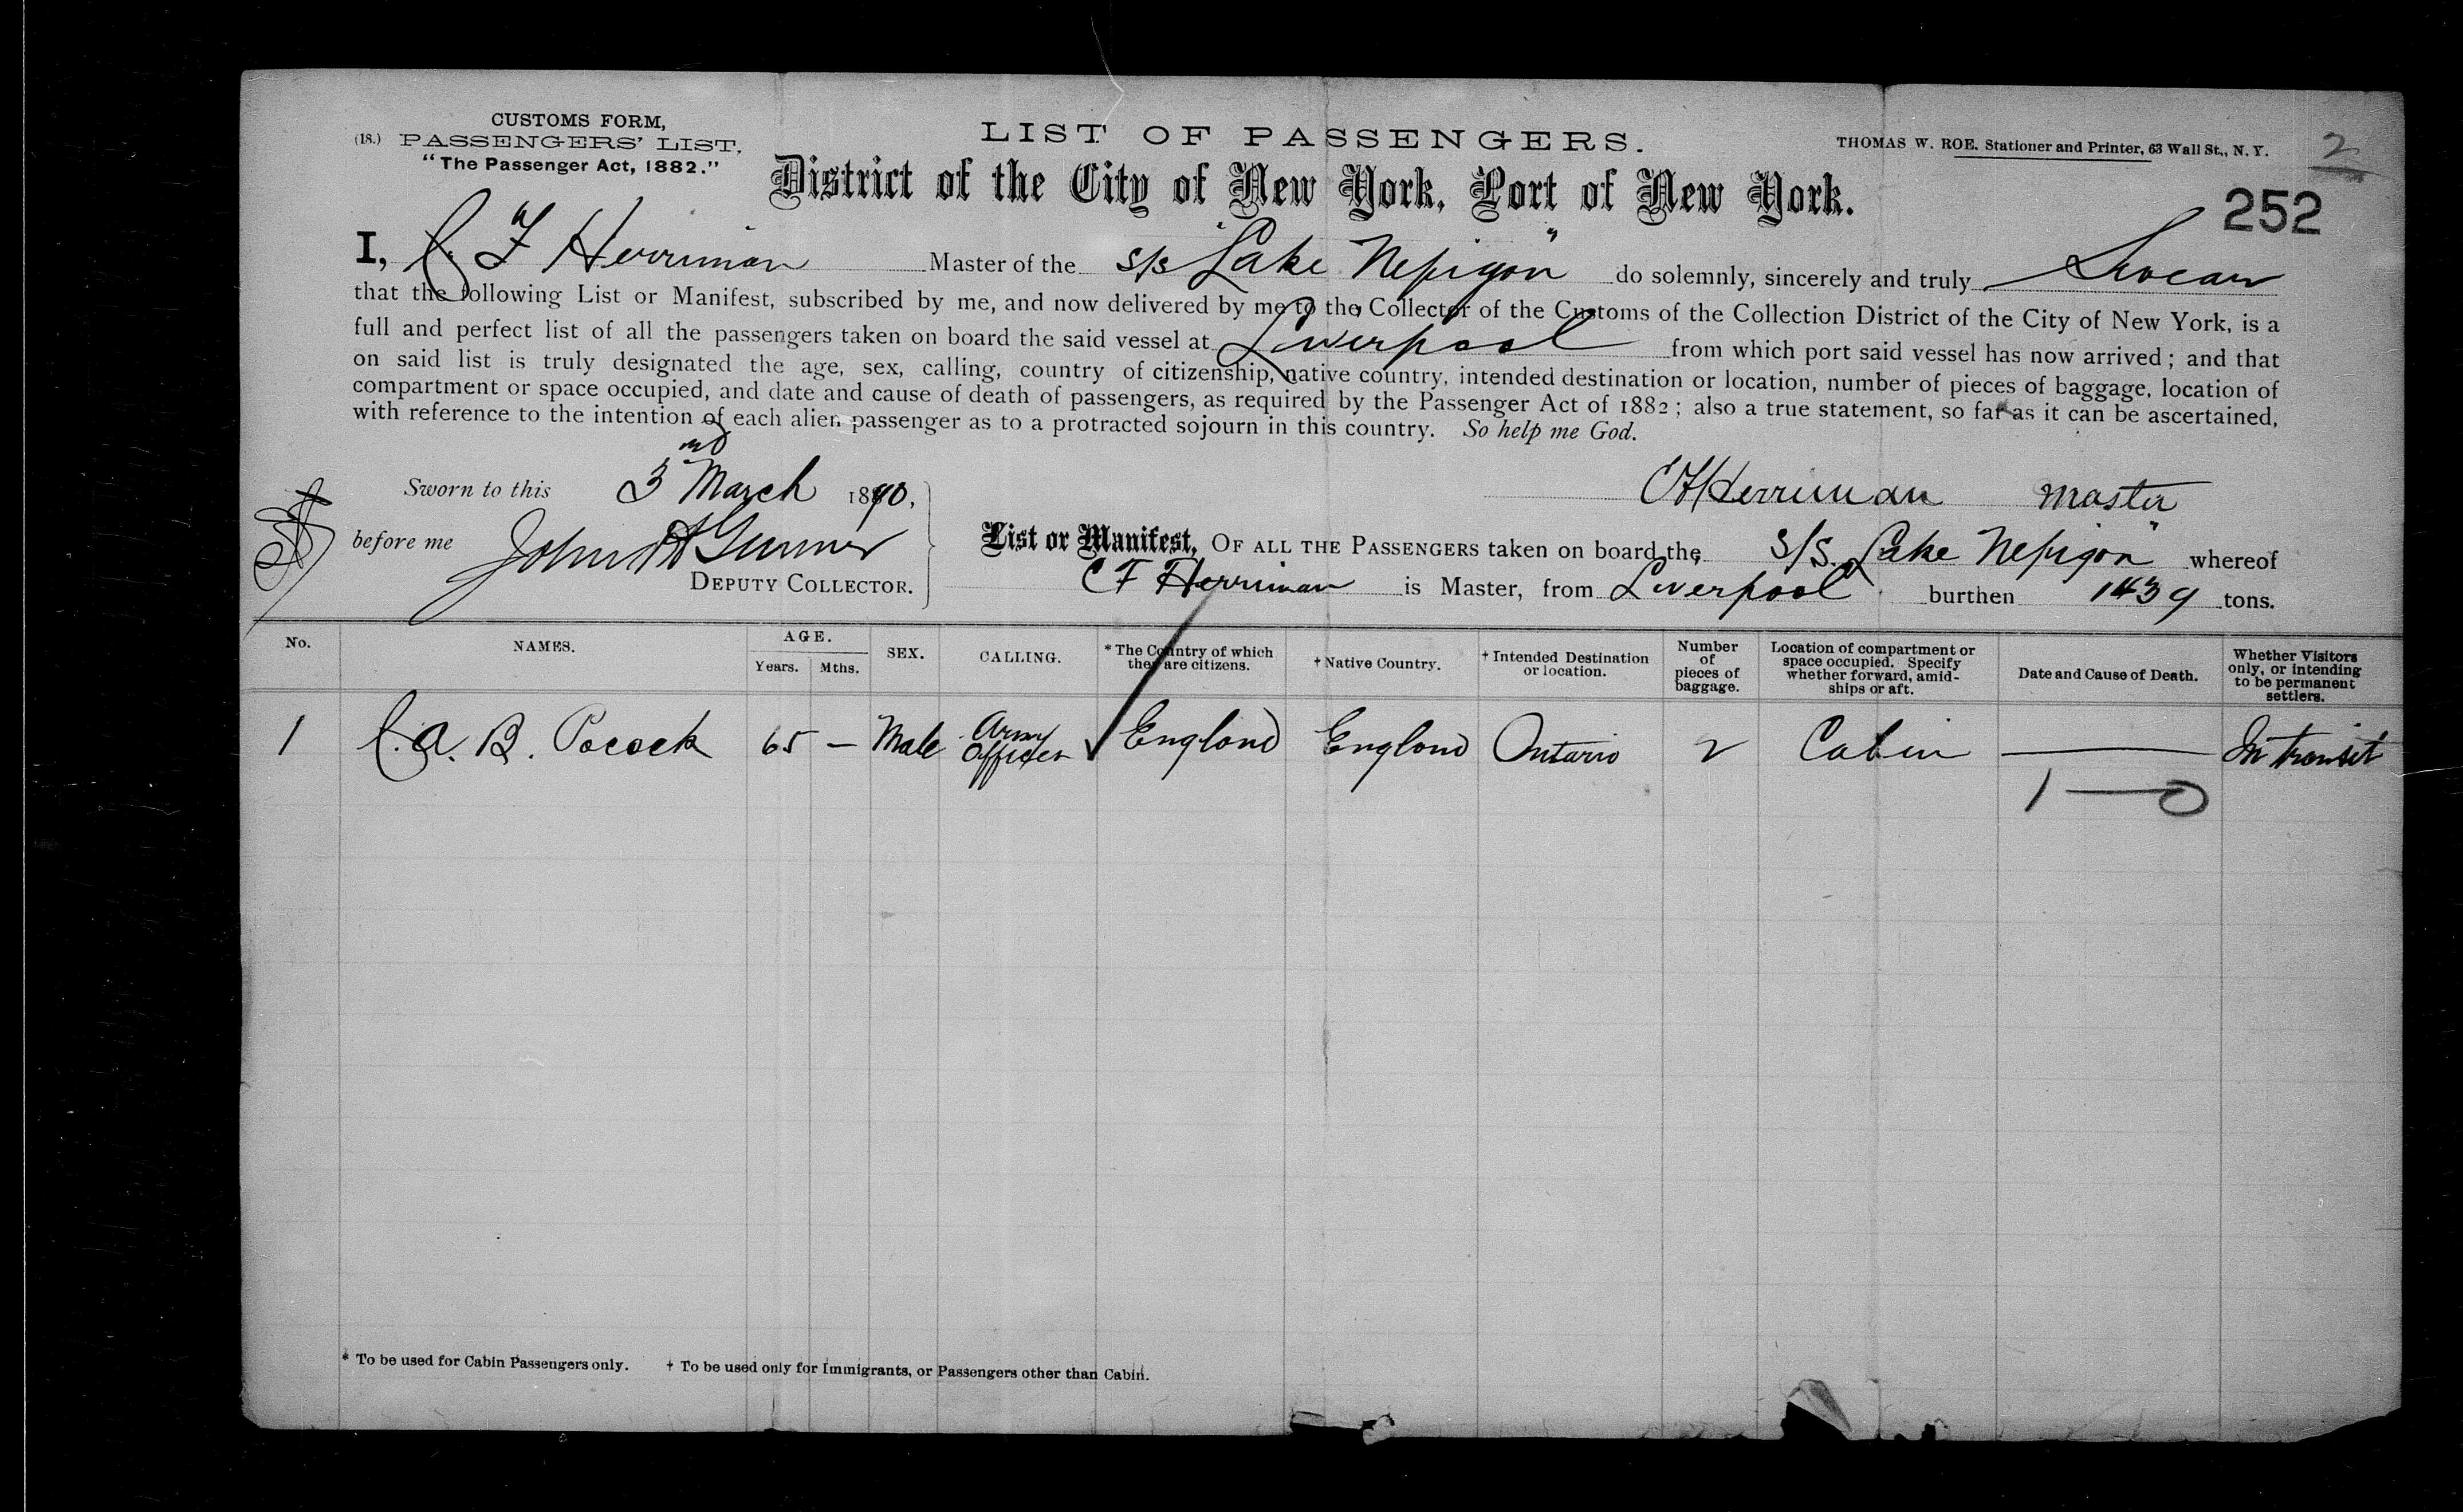 CUSTOMS FORM,
(18.) PASSENGERS' LIST,
"The Passenger Act, 1882."
LIST OF PASSENGERS.
THOMAS W. ROE. Stationer and Printer, 63 Wall St., N. Y.
2
District of the City of New York, Port of New York.
252
I, C. F Herriman Master of the S/S "Lake Nepigon" do solemnly, sincerely and truly Swear
that the following List or Manifest, subscribed by me, and now delivered by me to the Collector of the Customs of the Collection District of the City of New York, is a
full and perfect list of all the passengers taken on board the said vessel at Liverpool from which port said vessel has now arrived; and that
on said list is truly designated the age, sex, calling, country of citizenship, native country, intended destination or location, number of pieces of baggage, location of
compartment or space occupied, and date and cause of death of passengers, as required by the Passenger Act of 1882; also a true statement, so far as it can be ascertained,
with reference to the intention of each alien passenger as to a protracted sojourn in this country. So help me God.
Sworn to this 3rd March 1890,
C F Herriman master
before me John A Gunner
DEPUTY COLLECTOR.
List or Manifest, OF ALL THE PASSENGERS taken on board the S/S. "Lake Nepigon" whereof
C F Herriman is Master, from Liverpool burthen 1439 tons.
No. NAMES. AGE. Years. Mths. SEX. CALLING. * The Country of which they are citizens. † Native Country. † Intended Destination or location. Number of pieces of baggage. Location of compartment or space occupied. Specify whether forward, amid-ships or aft. Date and Cause of Death. Whether Visitors only, or intending to be permanent settlers.
1 C. A. B. Pocock 65 — Male Army Officer England England Ontario 2 Cabin — In transit
1—0
* To be used for Cabin Passengers only. † To be used only for Immigrants, or Passengers other than Cabin.